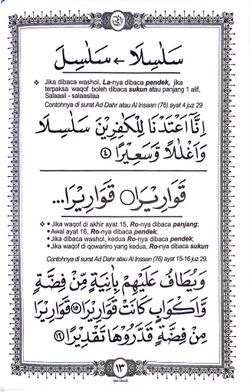 سَلٰسِلَا۟ ← سَلٰسِلَ
❖ Jika dibaca washol, La-nya dibaca pendek, jika
terpaksa waqof boleh dibaca sukun atau panjang 1 alif,
Salaasil - salaasilaa
Contohnya di surat Ad Dahr atau Al Insaan (76) ayat 4 juz 29
اِنَّآ اَعْتَدْنَا لِلْكٰفِرِيْنَ سَلٰسِلَا۟
وَاَغْلٰلًا وَّسَعِيْرًا ﴿٤﴾
قَوَارِيْرَا۠ ﴿١٥﴾ قَوَارِيْرَا۟...
❖ Jika waqof di akhir ayat 15, Ro-nya dibaca panjang;
❖ Awal ayat 16, Ro-nya dibaca pendek;
❖ Jika dibaca washol, kedua Ro-nya dibaca pendek;
❖ Jika waqof di qowariiro yang kedua, Ro-nya dibaca sukun
Contohnya di surat Ad Dahr atau Al Insaan (76) ayat 15-16 juz 29.
وَيُطَافُ عَلَيْهِمْ بِاٰنِيَةٍ مِّنْ فِضَّةٍ
وَّاَكْوَابٍ كَانَتْ قَوَارِيْرَا۠ ﴿١٥﴾ قَوَارِيْرَا۟
مِنْ فِضَّةٍ قَدَّرُوْهَا تَقْدِيْرًا ﴿١٦﴾
١٣